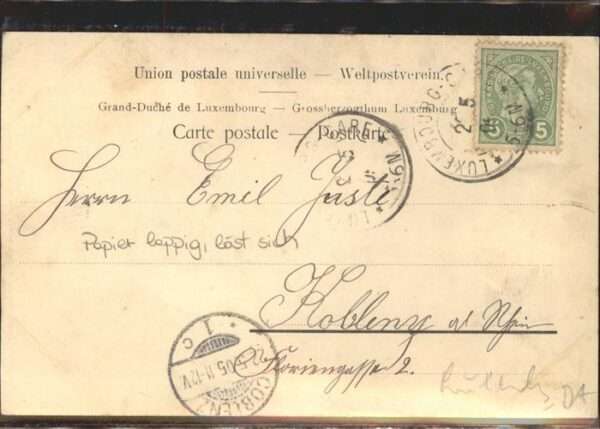 Union postale universelle — Weltpostverein.
Grand-Duché de Luxembourg — Grossherzogthum Luxemburg
Carte postale — Postkarte
5 5
LUXEMBOURG-G
GARE
Herrn Emil Juste
Papier lappig, löst sich
Koblenz a/ Rhein
Floriengasse 2.
COBLENZ
1 C
05 11-12V